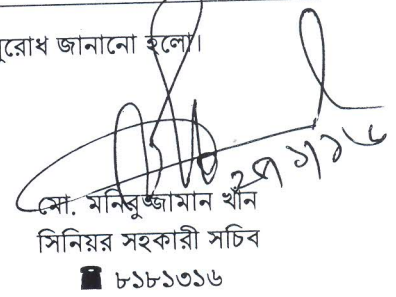 রোধ জানানো হলো।
মো. মনিরুজ্জামান খাঁন
সিনিয়র সহকারী সচিব
☎ ৮১৮১৩১৬